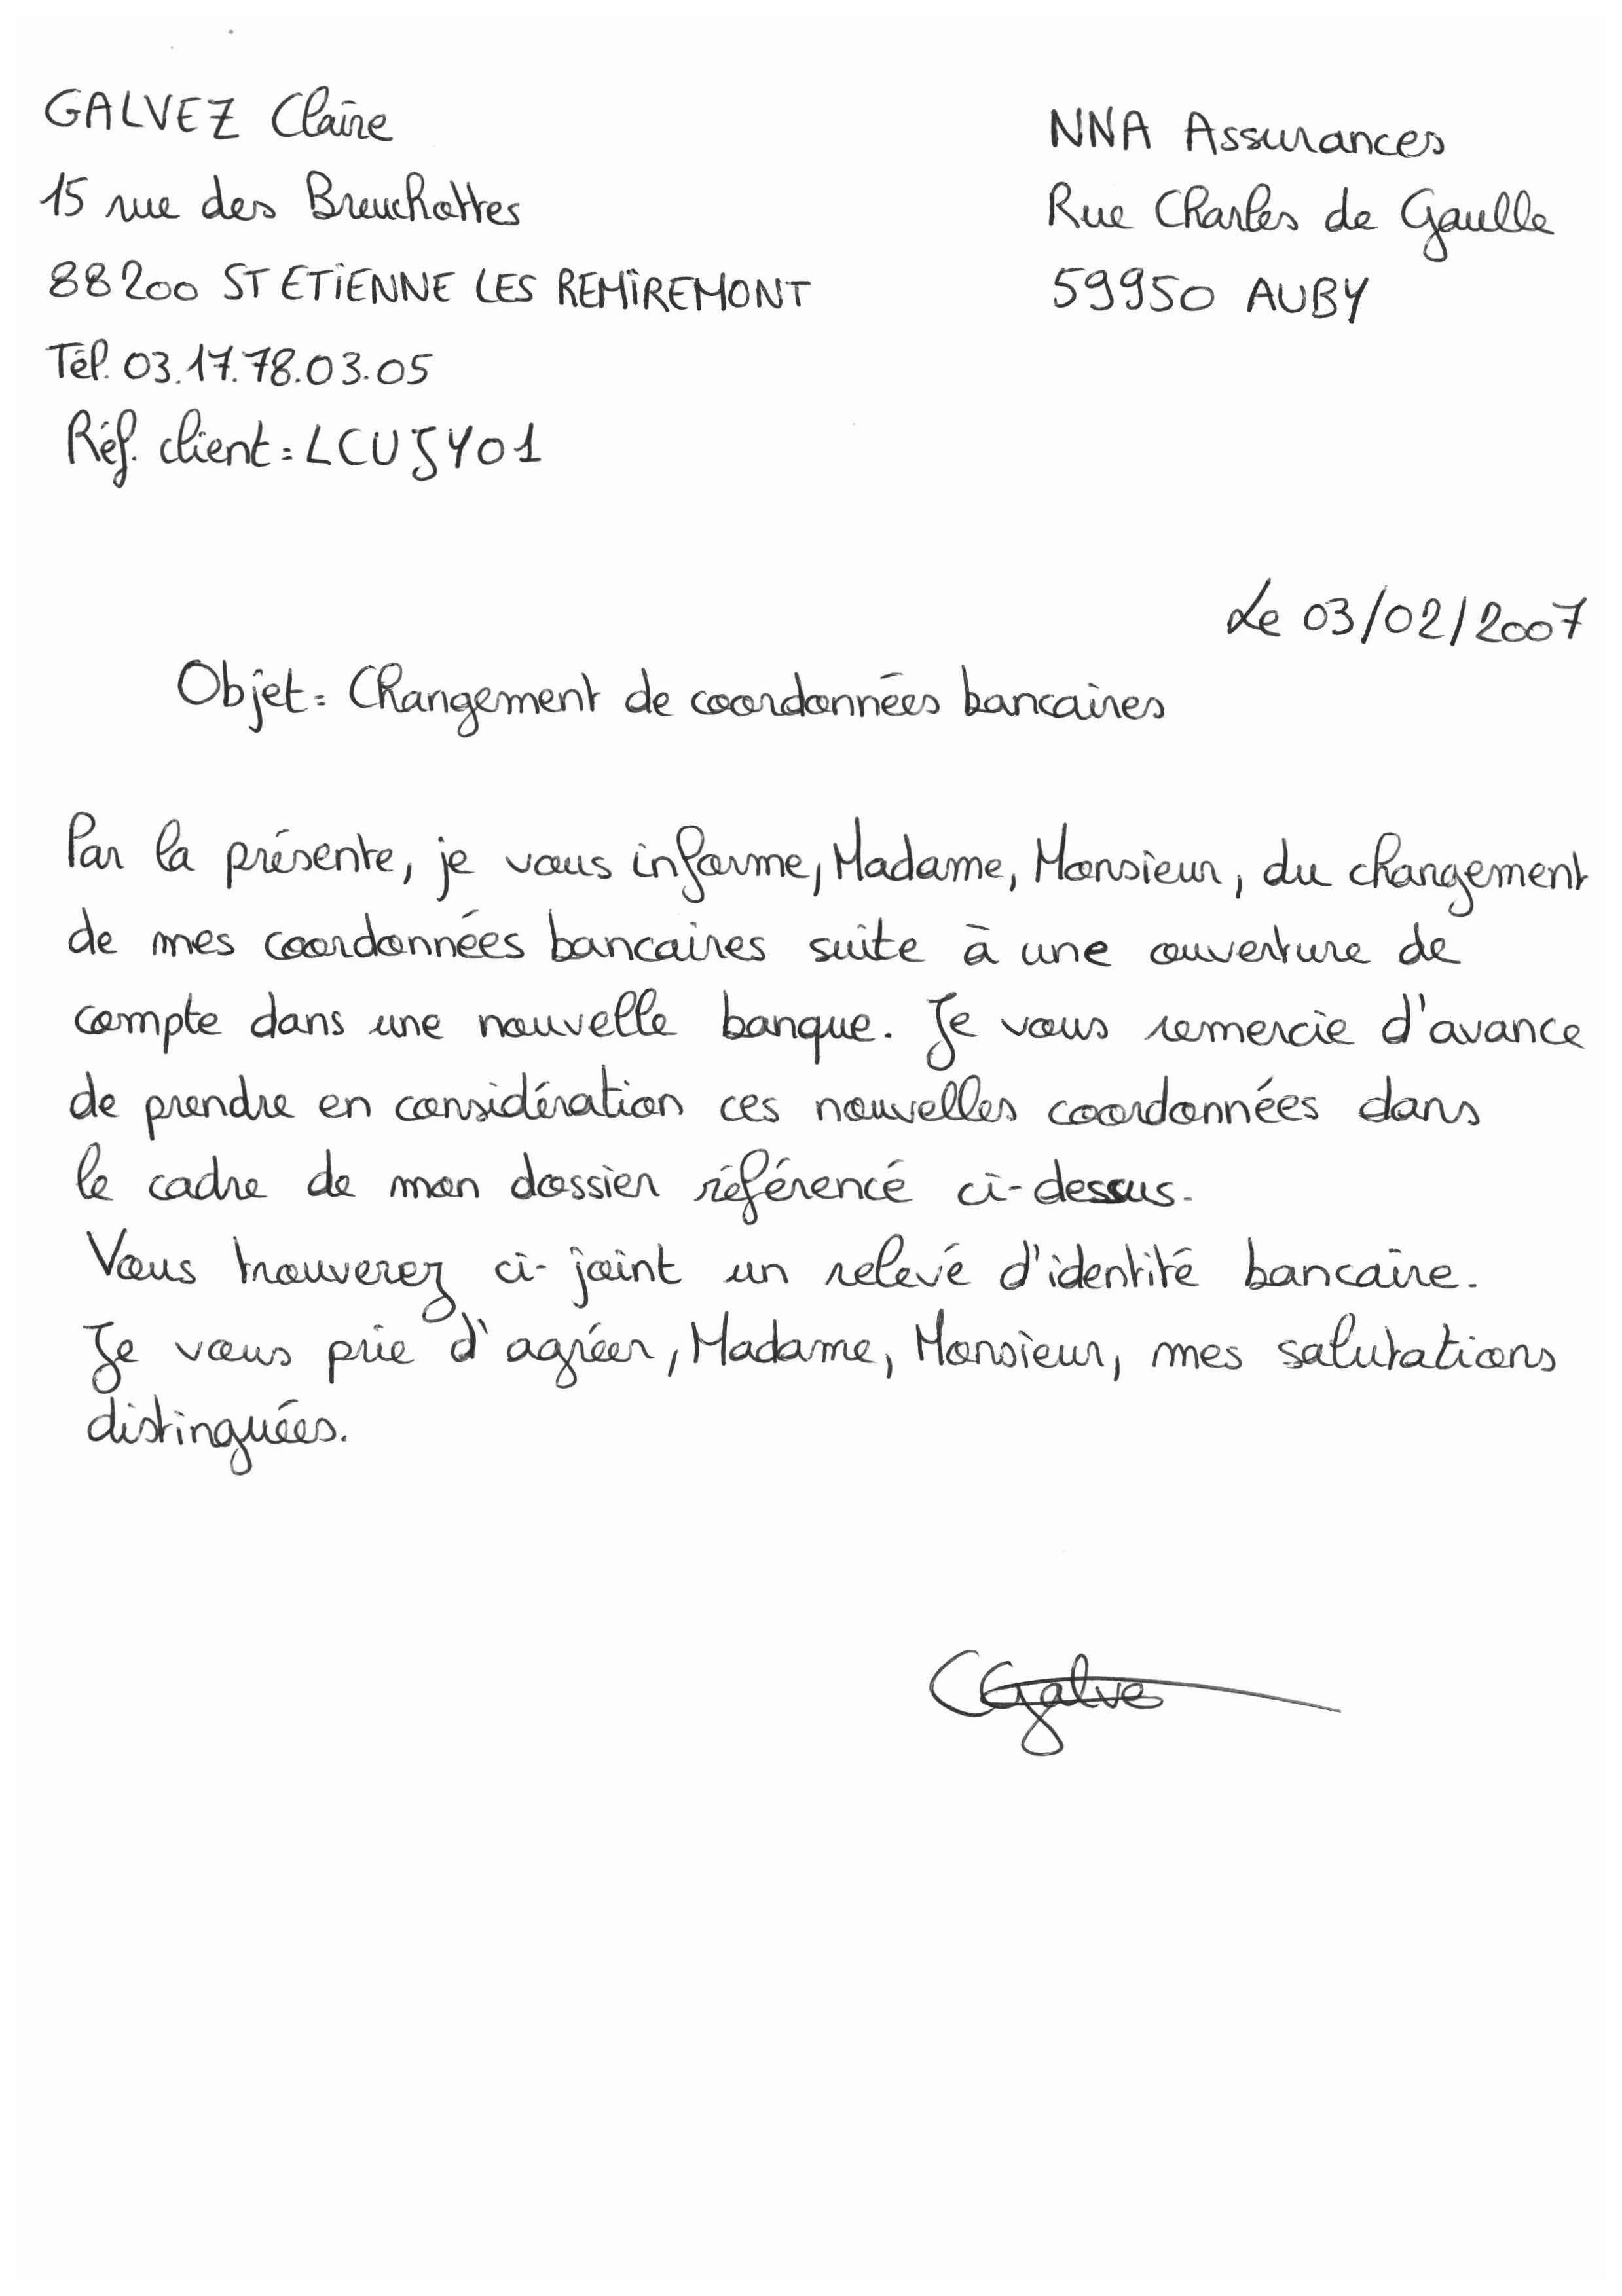 GALVEZ Claire
15 rue des Breuchottes
88200 ST ETIENNE LES REMIREMONT
Tél. 03.17.78.03.05
Réf. client : LCUJY01
NNA Assurances
Rue Charles de Gaulle
59950 AUBY
Le 03/02/2007
Objet : Changement de coordonnées bancaires
Par la présente, je vous informe, Madame, Monsieur, du changement
de mes coordonnées bancaires suite à une ouverture de
compte dans une nouvelle banque. Je vous remercie d'avance
de prendre en considération ces nouvelles coordonnées dans
le cadre de mon dossier référencé ci-dessus.
Vous trouverez ci-joint un relevé d'identité bancaire.
Je vous prie d'agréer, Madame, Monsieur, mes salutations
distinguées.
CGalve